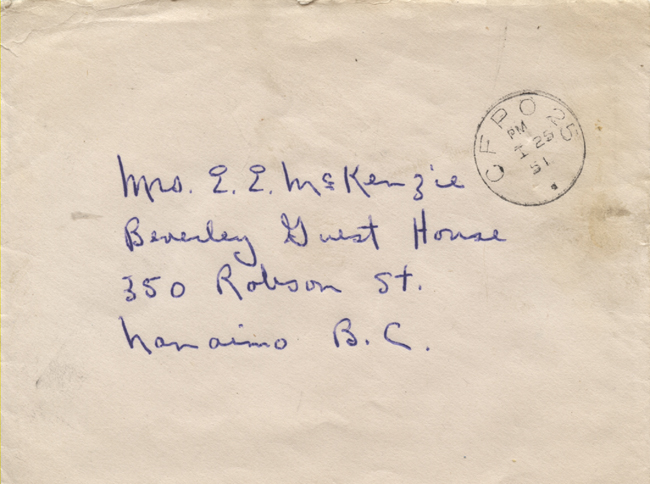 CFPO 25
PM
I 25
51
Mrs. E. E. McKenzie
Beverley Guest House
350 Robson St.
Nanaimo B.C.